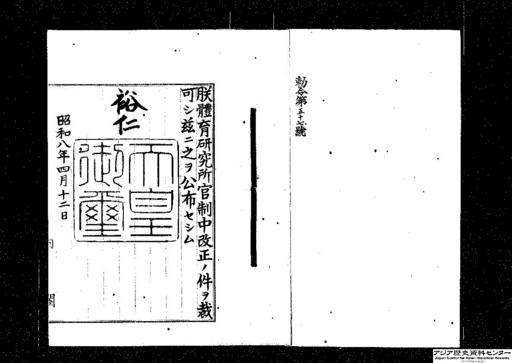 勅令第五十七號
朕體育研究所官制中改正ノ件ヲ裁
可シ茲ニ之ヲ公布セシム
裕仁
天皇
御璽
昭和八年四月十二日
内閣
アジア歴史資料センター
Japan Center for Asian Historical Records